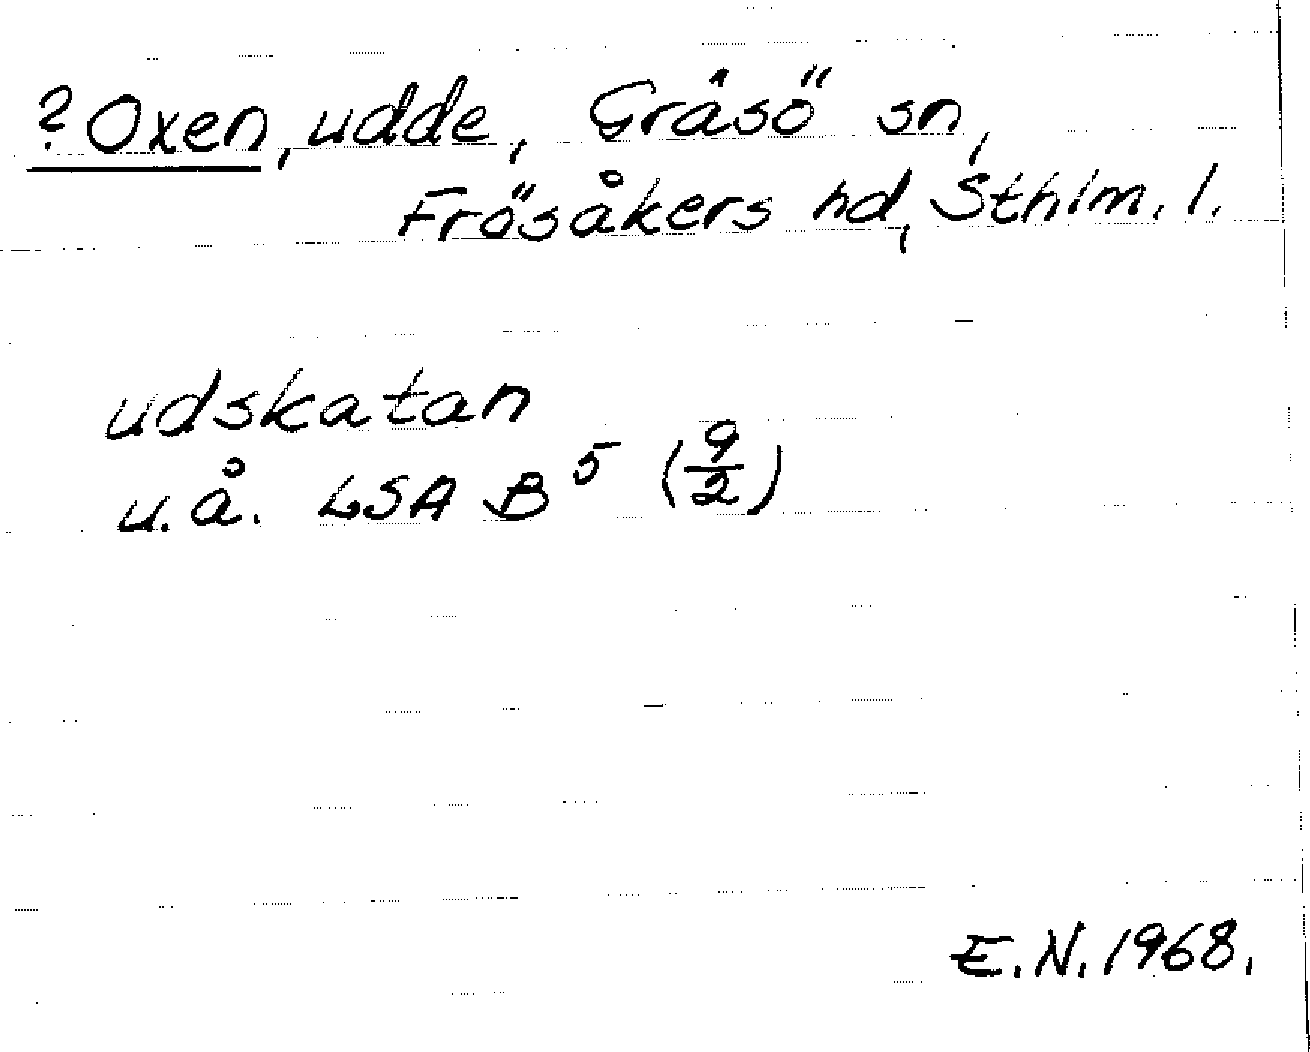 ? Oxen, udde, Gräsö sn,
Frösåkers hd, Sthlm. l.
udskatan
u.å. LSA B⁵ (9/2)
E.N. 1968.